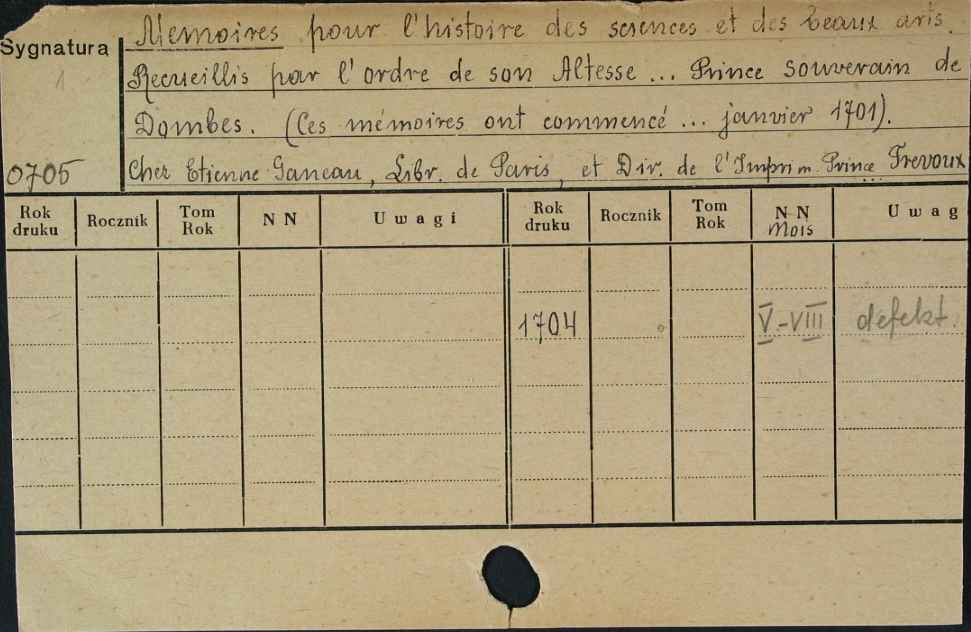 Memoires pour l'histoire des sciences et des beaux arts.
Sygnatura
1
Recueillis par l'ordre de son Altesse ... Prince souverain de
Dombes. (Ces mémoires ont commencé ... janvier 1701).
0705
Chez Etienne Ganeau, Libr. de Paris, et Dir. de l'Imprim. Prince ... Trevoux
Rok druku Rocznik Tom Rok NN Uwagi Rok druku Rocznik Tom Rok NN Mois Uwag
1704 V-VIII defekt.